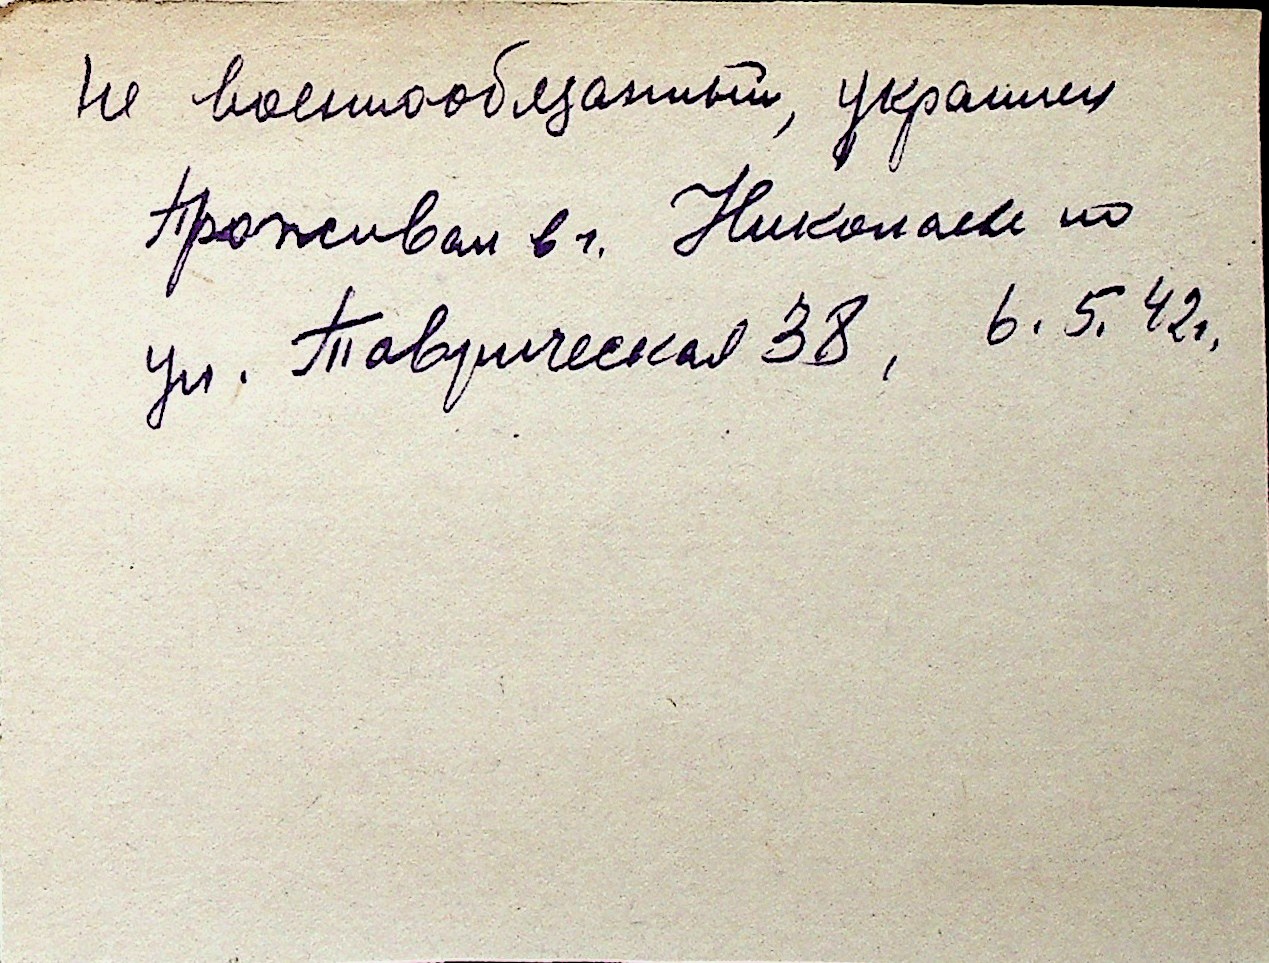 Не военнообязанный, украинец
Проживал в г. Николаеве по
ул. Таврическая 38, 6.5.42г.